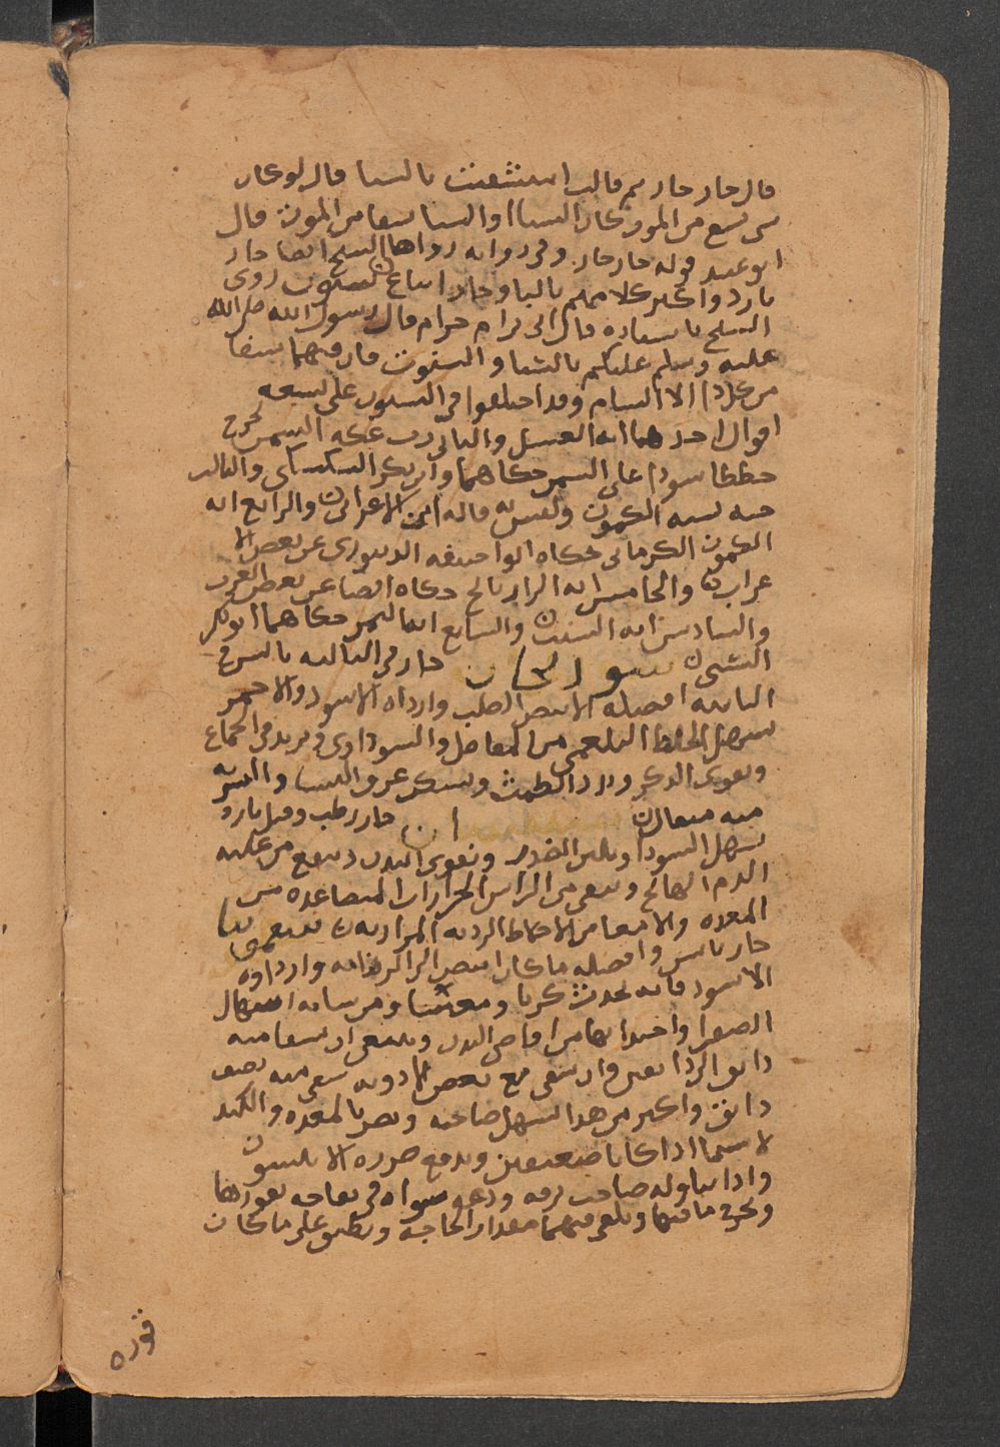 قال حار حار ثم قالت استمشيت بالسنا قال لو كان
شي يشفع من الموت كان السنا او السنا شفا من الموت قال
ابو عبيد قوله حار حار وفي رواية رواها الشيخ ايضا حار
يارد واكثر كلامهم باليا وحار اتباع السنوت روى
الشيخ باسناده قال الى ام حرام قال رسول الله صلى الله
عليه وسلم عليكم بالسنا والسنوت فان فيهما شفا
من كل دا الا السام وقد اختلفوا في السنوت على سبعة
اقوال احدهما انه العسل والثاني رب عكة السمن يخرج
خططا سودا على السمن حكاهما ابو بكر السكسكي والثالث
حب يشبه الكمون وليس به قاله ابن الاعرابي والرابع انه
الكمون الكرماني حكاه ابو حنيفة الدينوري عن بعض الا
عراب والخامس انه الرازيانج حكاه ايضا عن بعض العرب
والسادس انه الشبت والسابع انه التمر حكاهما ابو بكر
السني سورنجان حار في الثالثة يابس في
الثانية افضله الابيض الصلب وارداه الاسود والاحمر
يسهل الخلط البلغمي من المفاصل والسوداوي ويزيد في الجماع
ويقوي الذكر ويدر الطمث ويسكن عرق النسا والشربة
منه مثقال حار رطب وقيل بارد
يسهل السودا ويلين الصدر ويقوي البدن وينفع من غلبة
الدم الهائج وينقي من الراس البخارات المتصاعدة من
المعدة والامعا من الاخلاط الردية المرارية سقمونيا
حار يابس وافضله ما كان ابيض الى الزرقة وارداوه
الاسود فانه يحدث كربا ومغصا ومن شانه اسهال
الصفرا واجتذابها من اقاصي البدن وينبغي ان يسقا منه
دانق الى دانقين وان سقي مع بعض الادوية سقي منه نصف
دانق واكثر من هذا يسهل صاحبه ويضر بالمعدة والكبد
لا سيما اذا كانا ضعيفين ويدفع ضرره الانيسون
واذا تناوله صاحب ترفه ودعه سواه في تفاحة يقورها
ويخرج ما فيها ويلقي فيهما مقدار الحاجة ويطبق على ما كان
قوره